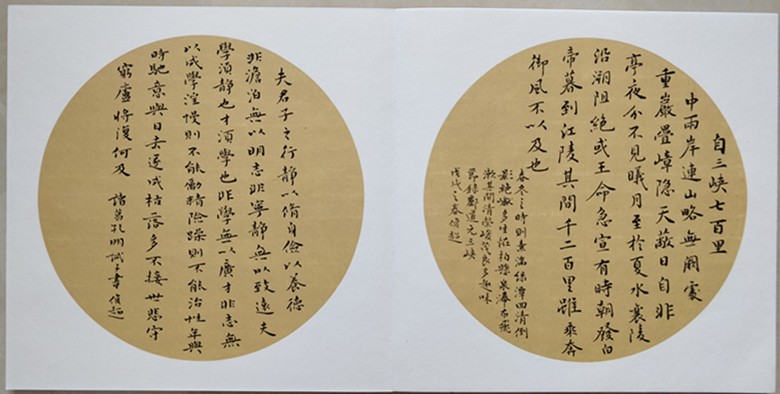 自三峡七百里
中兩岸連山略無闕處
重巖疊嶂隐天蔽日自非
亭夜分不見曦月至於夏水襄陵
沿溯阻絕或王命急宣有時朝發白
帝暮到江陵其間千二百里雖乘奔
御風不以及也
春冬之時則素湍綠潭回清倒
影絕巘多生怪柏懸泉瀑布飛
漱其間清榮峻茂良多趣味
節錄酈道元三峡
戊戌之春
夫君子之行靜以脩身儉以養德
非澹泊無以明志非寧靜無以致遠夫
學須靜也才須學也非學無以廣才非志無
以成學淫慢則不能勵精險躁則不能治性年與
時馳意與日去遂成枯落多不接世悲守
窮廬將復何及 諸葛孔明誡子書